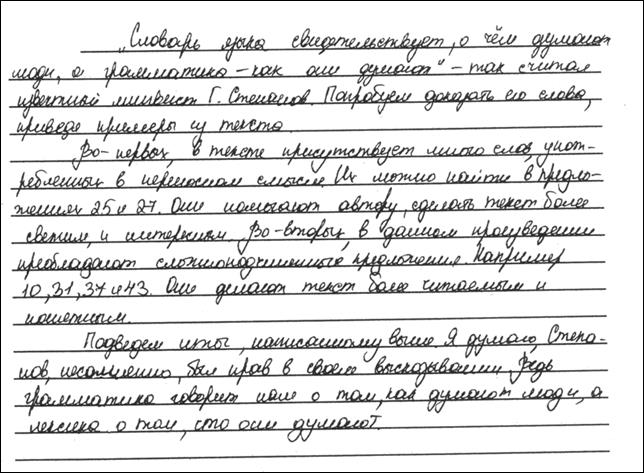 „Словарь языка свидетельствует, о чём думают
люди, а грамматика – как они думают" – так считал
известный лингвист Г. Степанов. Попробуем доказать его слова,
приведя примеры из текста.
Во-первых, в тексте присутствует много слов, упот-
ребленных в переносном смысле. Их можно найти в предло-
жениях 25 и 27. Они помогают автору, сделать текст более
светлым, и интересным. Во-вторых, в данном произведении
преобладают сложноподчиненные предложения. Например
10, 31, 37 и 43. Они делают текст более читаемым и
понятным.
Подведем итоги, написанному выше. Я думаю, Степа-
нов, несомненно, был прав в своем высказывании. Ведь
грамматика говорит нам о том, как думают люди, а
лексика о том, сто они думают.